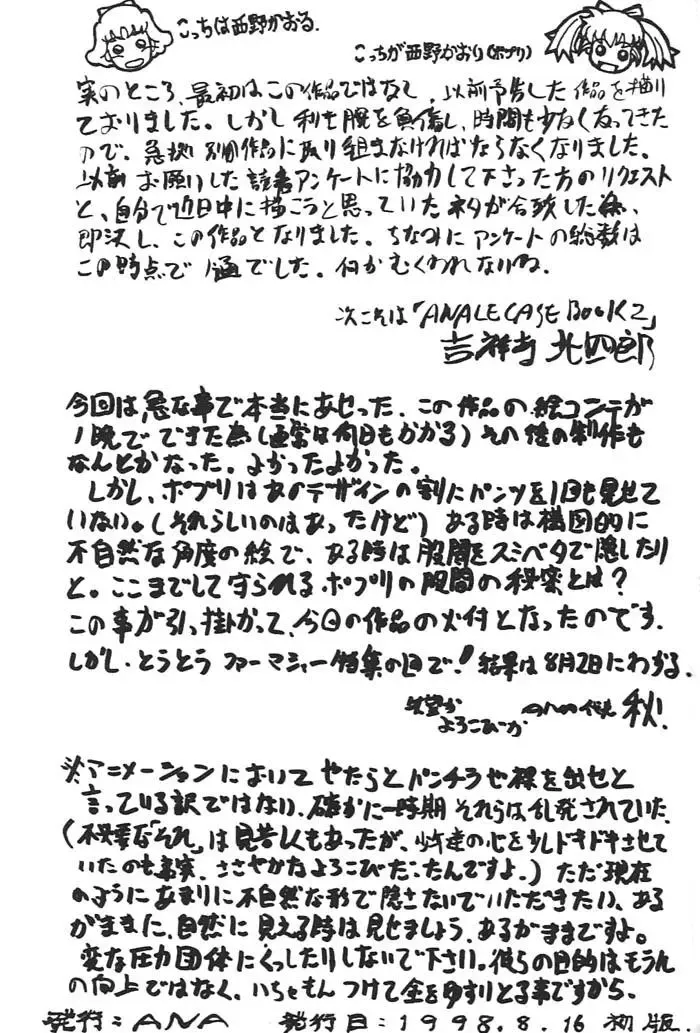 こっちは西野かおる.
こっちが西野かおり(ポプリ)
実のところ、最初はこの作品ではなく、以前予告した作品を描い
ておりました。しかし利き腕を負傷し、時間も少なくなってきた
ので、急拠 別個作品に取り組まなければならなくなりました。
以前お願いした読者アンケートに協力して下さった方のリクエスト
と、自分で近日中に描こうと思っていたネタが合致した為、
即決し、この作品となりました。ちなみにアンケートの総数は
この時点で1通でした。何かむくわれないね.
次こそは「ANALE CASE BOOK 2」
吉祥寺 北四郎
今回は急な事で本当にあせった.この作品の絵コンテが
1晩でできた為(通常は何日もかかる)その後の制作も
なんとかなった.よかったよかった。
しかし、ポプリはあのデザインの割にパンツを1回も見せて
いない。(それらしいのはあったけど)ある時は構図的に
不自然な角度の絵で、ある時は股間をスミベタで隠したり
と。ここまでして守られるポプリの股間の秘密とは?
この事が引っ掛かって、今回の作品の火付となったのです.
しかし.とうとうファーマシャー 特集の回で!結果は8月2日にわかる.
よろこびーか 秋!
アニメーションにおいてやたらとパンチラや裸を出せと
言っている訳ではない.確かに一時期それらは乱発されていた.
(不必要な"それ"は見苦しくもあったが、少年達の心を少しドキドキさせて
いたのも事実.ささやかなよろこびだったんですよ.)ただ現在
のようにあまりに不自然な形で隠さないでいただきたい、ある
がままに、自然に見える時は見せましょう.あるがままですよ。
変な圧力団体にくっしたりしないで下さい。彼らの目的はもうん
の向上ではなく、いちゃもんつけて金をゆすりとる事ですから.
発行:ANA 発行日:1998.8.16 初版